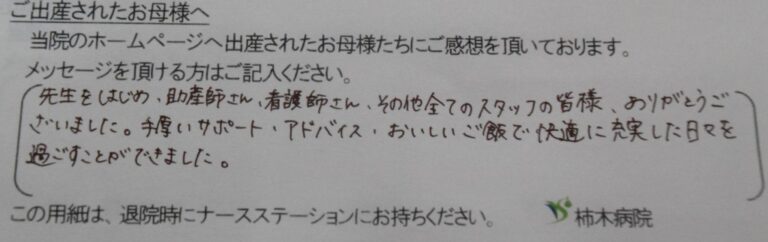 ご出産されたお母様へ
当院のホームページへ出産されたお母様たちにご感想を頂いております。
メッセージを頂ける方はご記入ください。
先生をはじめ、助産師さん、看護師さん、その他全てのスタッフの皆様、ありがとうご
ざいました。手厚いサポート・アドバイス・おいしいご飯で快適に充実した日々を
過ごすことができました。
この用紙は、退院時にナースステーションにお持ちください。 柿木病院